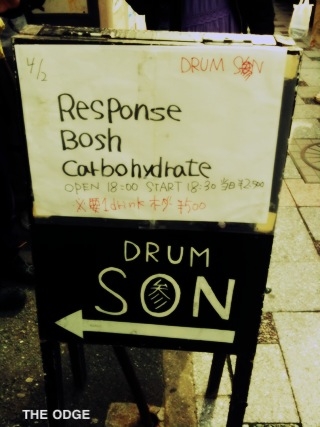 4/2
DRUM SON
Response
Bosh
Carbohydrate
OPEN 18:00 START 18:30 当日 ¥2500
※要1drinkオーダー ¥500
DRUM
SON
参
THE ODGE